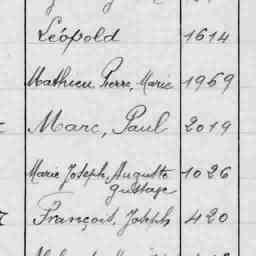 Léopold 1614
Mathieu, Pierre, Marie 1959
Marc, Paul 2019
Marie Joseph, Auguste 1026
gustave
François, Joseph 420